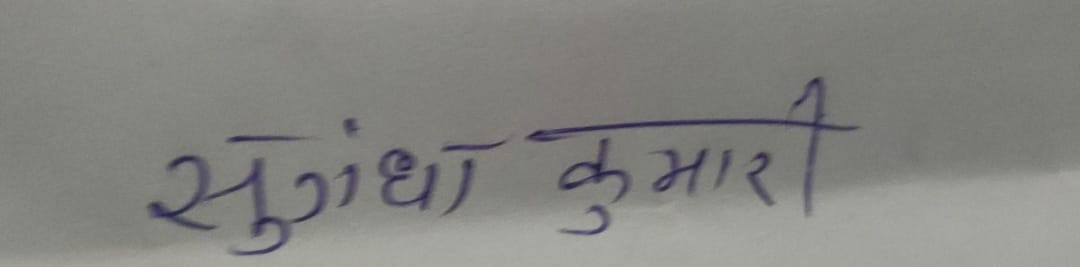 सुगंधा कुमारी